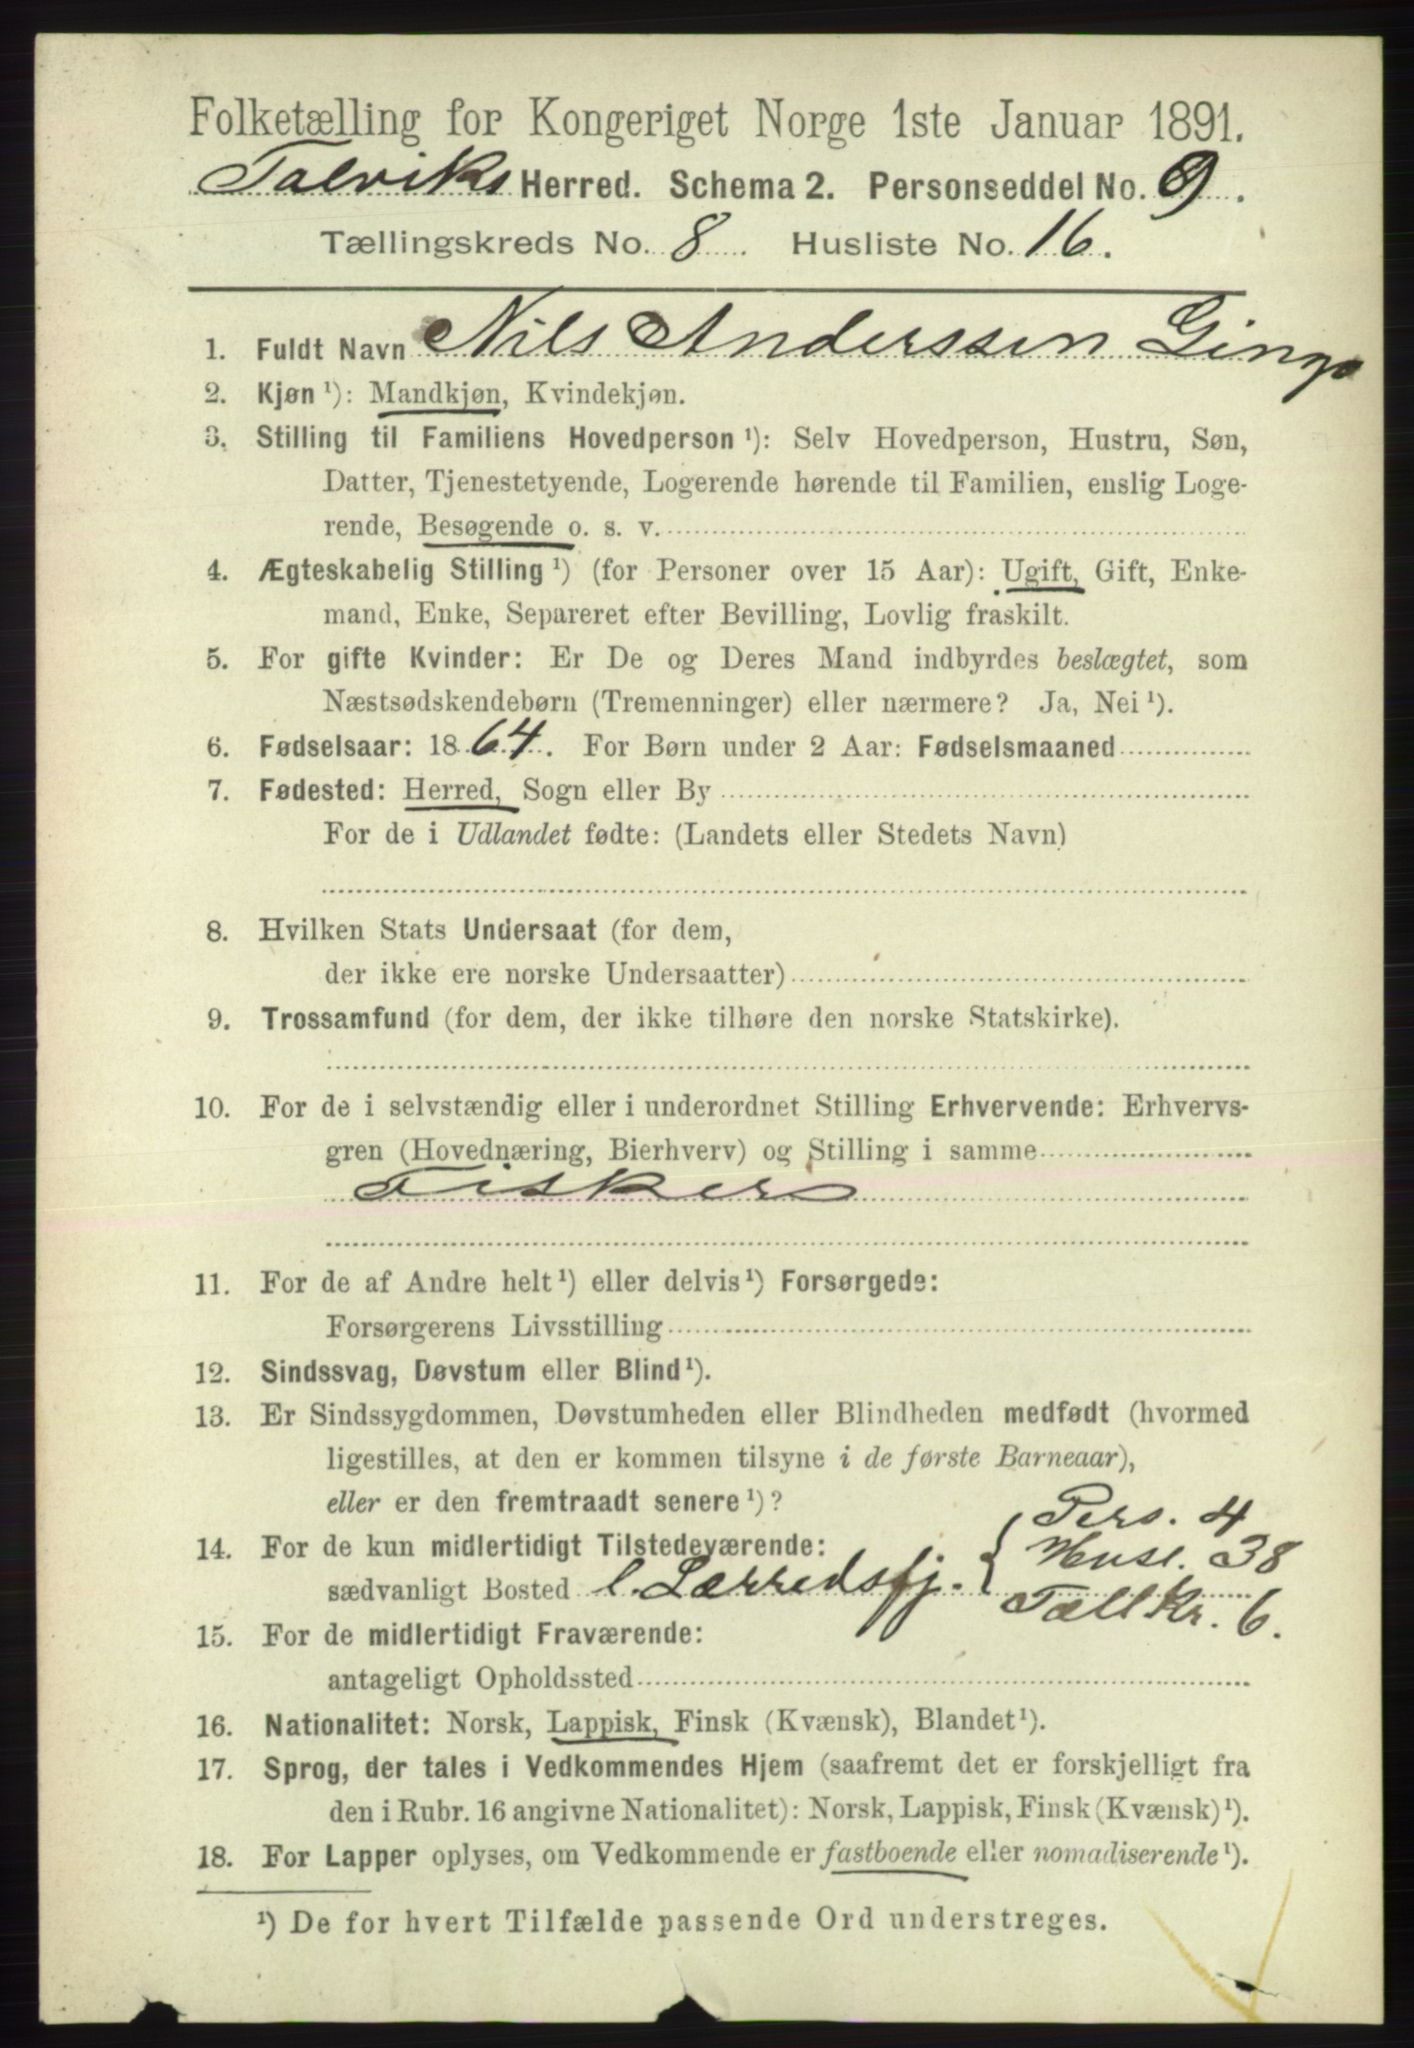 Folketælling for Kongeriget Norge 1ste Januar 1891.
Talviks Herred. Schema 2. Personseddel No. 9.
Tællingskreds No. 8. Husliste No. 16.
1. Fuldt Navn Nils Anderssen
2. Kjøn ¹): Mandkjøn, Kvindekjøn.
3. Stilling til Familiens Hovedperson ¹): Selv Hovedperson, Hustru, Søn,
Datter, Tjenestetyende, Logerende hørende til Familien, enslig Loge-
rende, Besøgende o. s. v.
4. Ægteskabelig Stilling ¹) (for Personer over 15 Aar): Ugift, Gift, Enke-
mand, Enke, Separeret efter Bevilling, Lovlig fraskilt.
5. For gifte Kvinder: Er De og Deres Mand indbyrdes beslægtet, som
Næstsødskendebørn (Tremenninger) eller nærmere? Ja, Nei ¹).
6. Fødselsaar: 1864. For Børn under 2 Aar: Fødselsmaaned
7. Fødested: Herred, Sogn eller By
For de i Udlandet fødte: (Landets eller Stedets Navn)
8. Hvilken Stats Undersaat (for dem,
der ikke ere norske Undersaatter)
9. Trossamfund (for dem, der ikke tilhøre den norske Statskirke).
10. For de i selvstændig eller i underordnet Stilling Erhvervende: Erhvervs-
gren (Hovednæring, Bierhverv) og Stilling i samme
Fisker
11. For de af Andre helt ¹) eller delvis ¹) Forsørgede:
Forsørgerens Livsstilling
12. Sindssvag, Døvstum eller Blind ¹).
13. Er Sindssygdommen, Døvstumheden eller Blindheden medfødt (hvormed
ligestilles, at den er kommen tilsyne i de første Barneaar),
eller er den fremtraadt senere ¹)?
Pers. 4
14. For de kun midlertidigt Tilstedeværende:
Husl. 38
sædvanligt Bosted l. Lærredsfj.
Tællkr. 6.
15. For de midlertidigt Fraværende:
antageligt Opholdssted
16. Nationalitet: Norsk, Lappisk, Finsk (Kvænsk), Blandet ¹).
17. Sprog, der tales i Vedkommendes Hjem (saafremt det er forskjelligt fra
den i Rubr. 16 angivne Nationalitet): Norsk, Lappisk, Finsk (Kvænsk) ¹).
18. For Lapper oplyses, om Vedkommende er fastboende eller nomadiserende ¹).
¹) De for hvert Tilfælde passende Ord understreges.